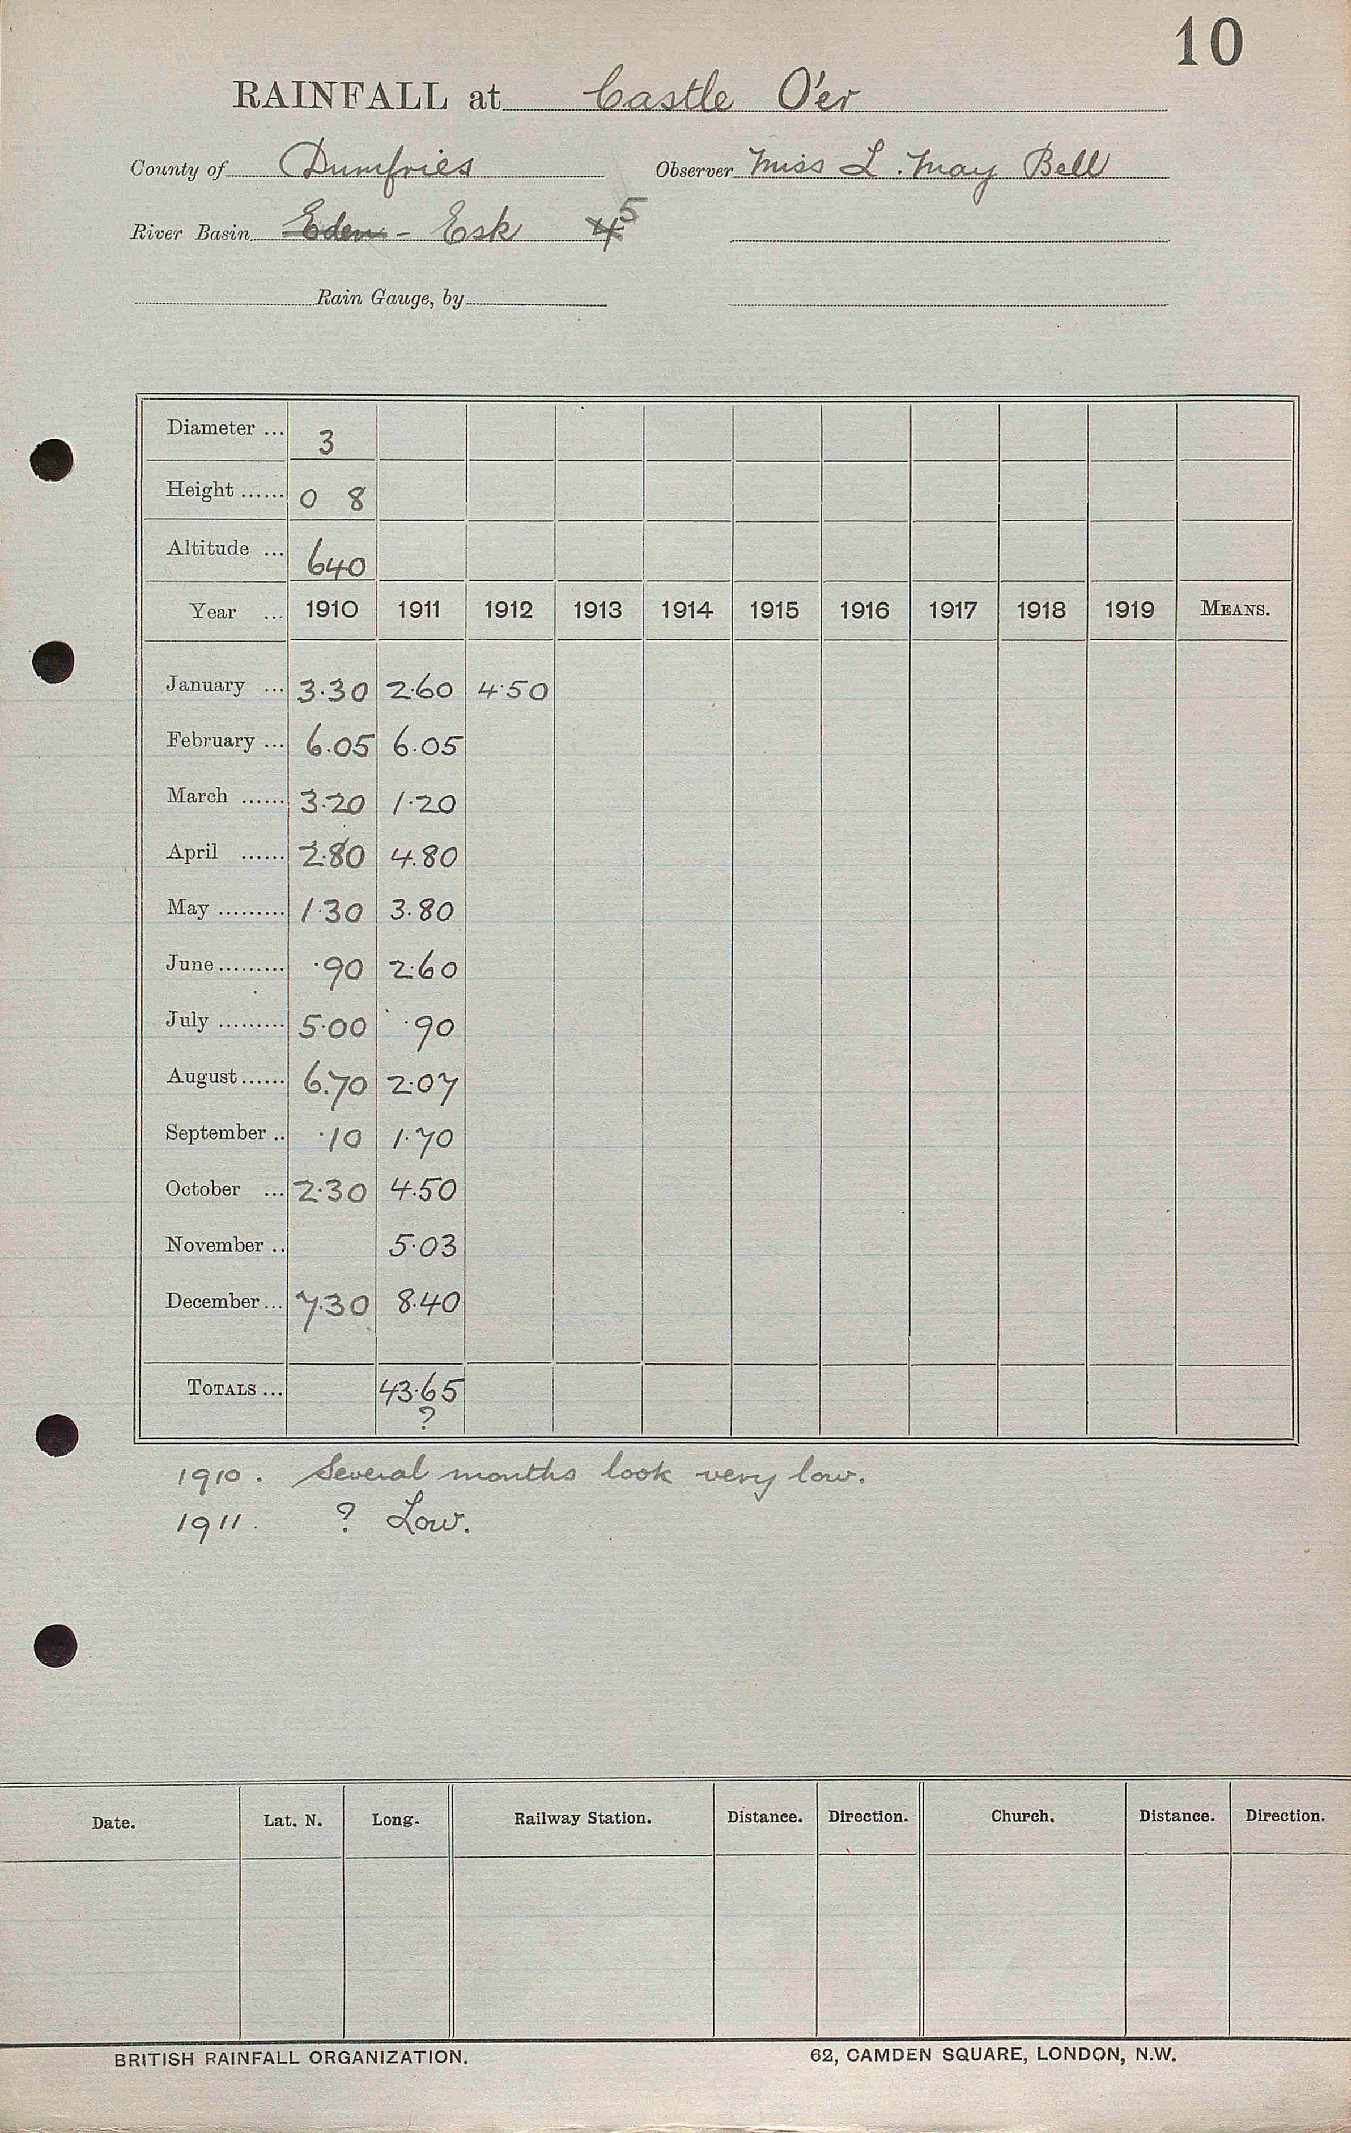 10
RAINFALL at Castle O'er
County of Dumfries Observer Miss L. May Bell
River Basin Eden - Esk 4 5
Rain Gauge, by
Diameter ... 3
Height ...... 0 8
Altitude ... 640
Year ... 1910 1911 1912 1913 1914 1915 1916 1917 1918 1919 MEANS.
January ... 3.30 2.60 4.50
February ... 6.05 6.05
March ...... 3.20 1.20
April ...... 2.80 4.80
May ......... 1.30 3.80
June ......... .90 2.60
July ......... 5.00 .90
August ...... 6.70 2.07
September .. .10 1.70
October ... 2.30 4.50
November .. 5.03
December ... 7.30 8.40
TOTALS ... 43.65
?
1910. Several months look very low.
1911. ? Low.
Date. Lat. N. Long. Railway Station. Distance. Direction. Church. Distance. Direction.
BRITISH RAINFALL ORGANIZATION. 62, CAMDEN SQUARE, LONDON, N.W.